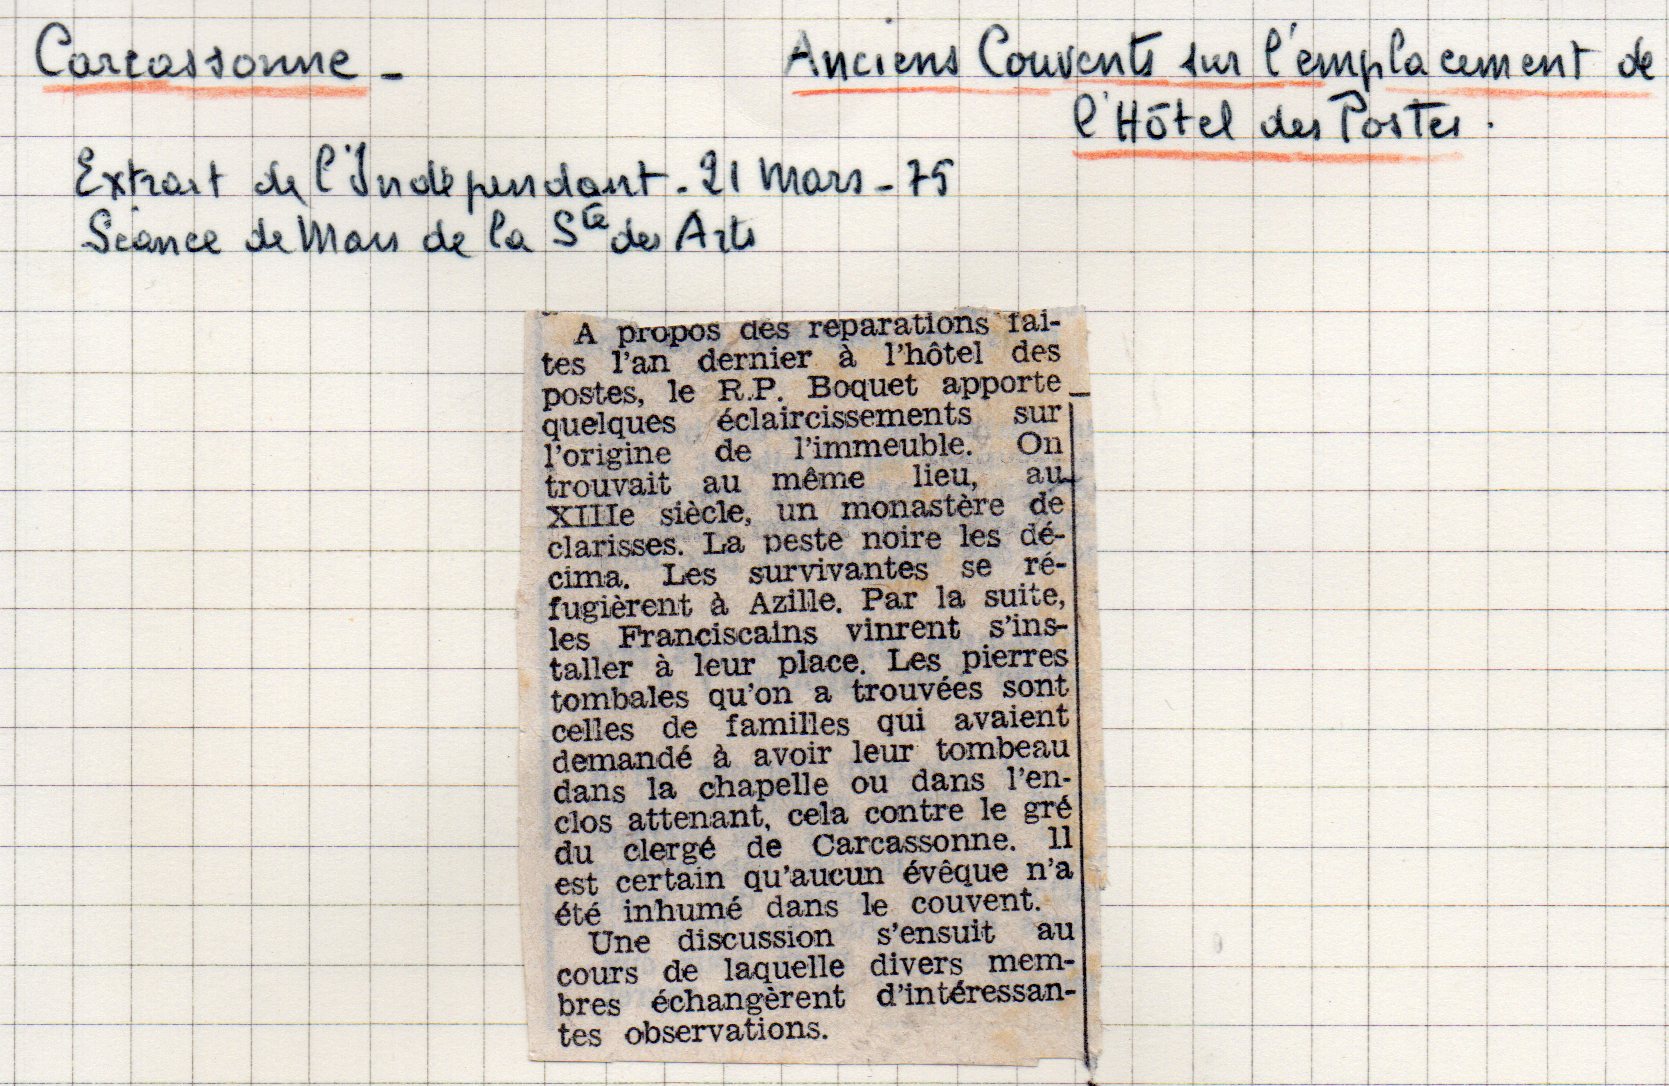 Carcassonne - Anciens Couvents sur l'emplacement de
l'Hôtel des Postes.
Extrait de l'Indépendant - 21 Mars - 75
Séance de Mars de la Sté des Arts
A propos des reparations fai-
tes l'an dernier à l'hôtel des
postes, le R.P. Boquet apporte
quelques éclaircissements sur
l'origine de l'immeuble. On
trouvait au même lieu, au
XIIIe siècle, un monastère de
clarisses. La peste noire les dé-
cima. Les survivantes se ré-
fugièrent à Azille. Par la suite,
les Franciscains vinrent s'ins-
taller à leur place. Les pierres
tombales qu'on a trouvées sont
celles de familles qui avaient
demandé à avoir leur tombeau
dans la chapelle ou dans l'en-
clos attenant, cela contre le gré
du clergé de Carcassonne. Il
est certain qu'aucun évêque n'a
été inhumé dans le couvent.
Une discussion s'ensuit au
cours de laquelle divers mem-
bres échangèrent d'intéressan-
tes observations.